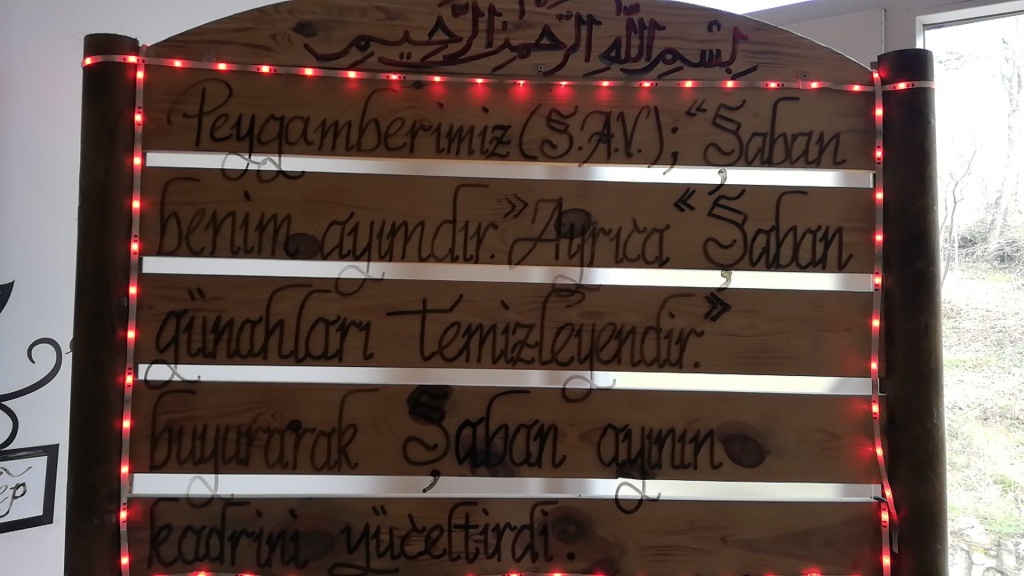 بِسْمِ اللَّهِ الرَّحْمَنِ الرَّحِيمِ
Peygamberimiz (S.A.V.); "Şaban
benim ayımdır." Ayrıca "Şaban
günahları temizleyendir."
buyurarak Şaban ayının
kadrini yüceltirdi.